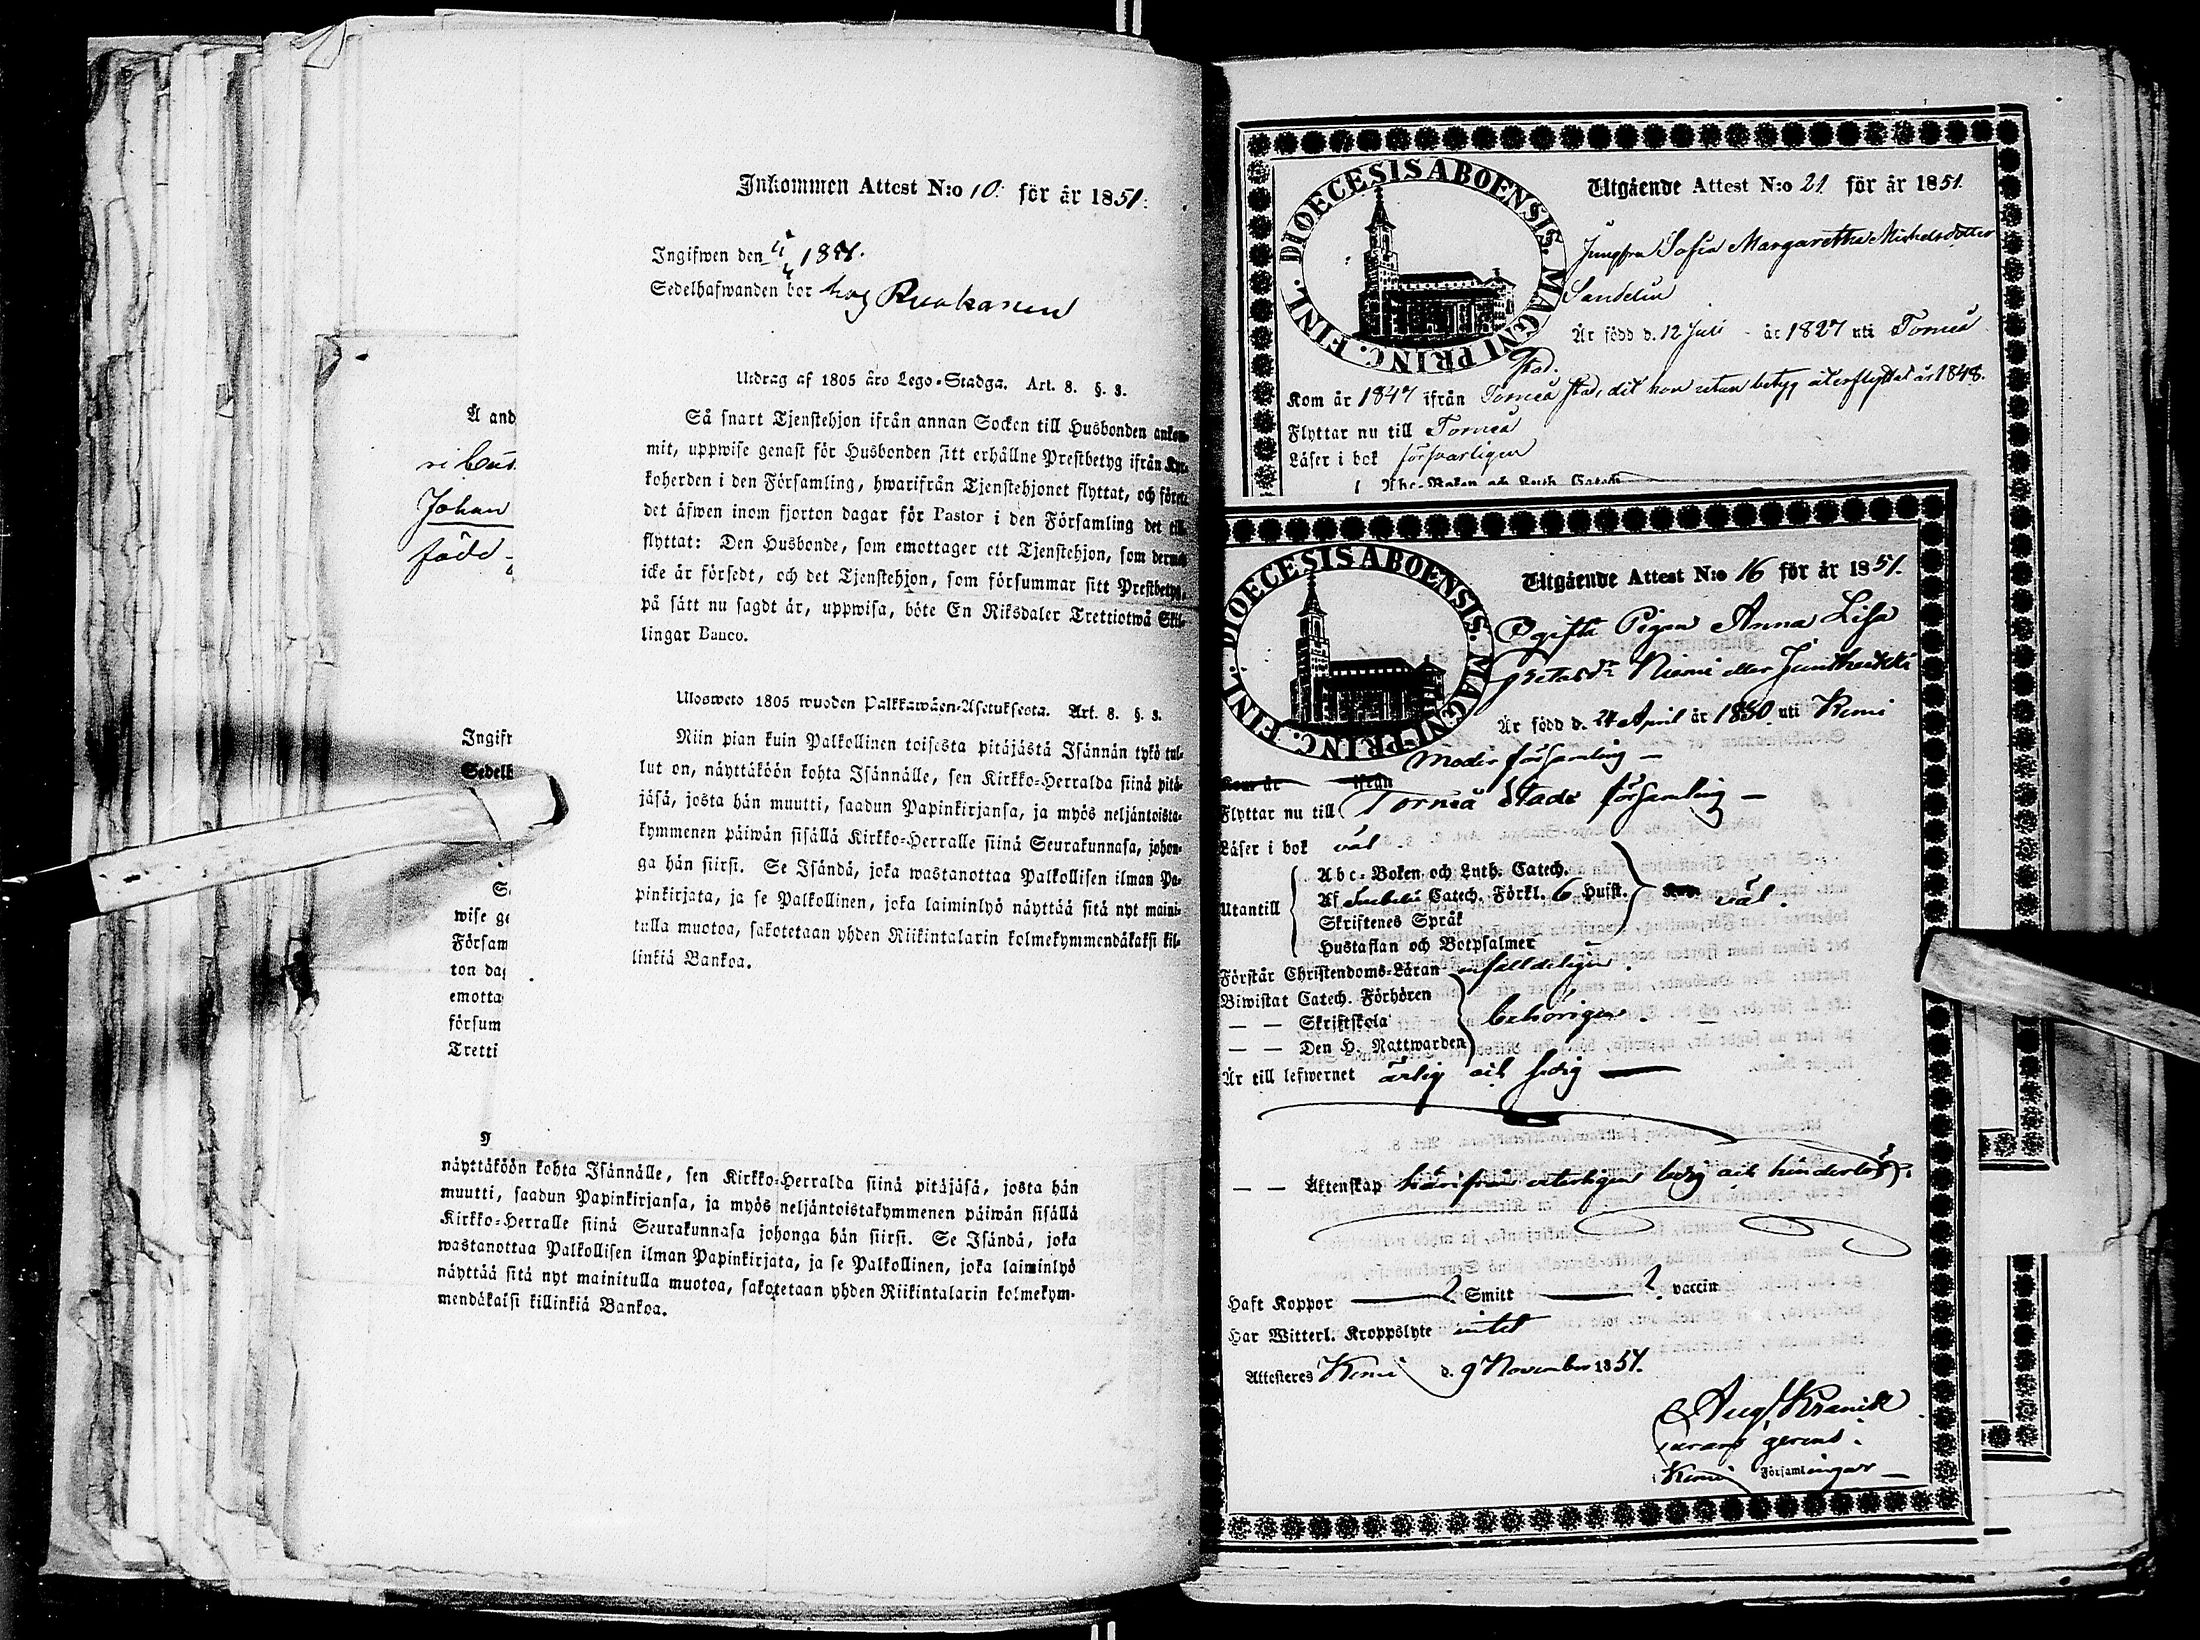 Inkommen Attest N:o 10. för år 1851.
Ingifwen den 4/4 1851.
Sedelhafwanden bor hos Ruokanen
Utdrag af 1805 års Lego-Stadga. Art. 8. §. 3.
Så snart Tjenstehjon ifrån annan Socken till Husbonden ankom-
mit, uppwise genast för Husbonden sitt erhållne Prestbetyg ifrån Kyr-
koherden i den Församling, hwarifrån Tjenstehjonet flyttat, och förete
det äfwen inom fjorton dagar för Pastor i den Församling det till-
flyttat: Den Husbonde, som emottager ett Tjenstehjon, som dermed
icke är försedt, och det Tjenstehjon, som försummar sitt Prestbetyg,
på sätt nu sagdt är, uppwisa, böte En Riksdaler Trettiotwå Skil-
lingar Banco.
Ulosweto 1805 wuoden Palkkawäen-Asetuksesta. Art. 8. §. 3.
Niin pian kuin Palkollinen toisesta pitäjästä Isännän tykö tul-
lut on, näyttäköön kohta Isännälle, sen Kirkko-Herralda siinä pitä-
jäsä, josta hän muutti, saadun Papinkirjansa, ja myös neljäntoista-
kymmenen päiwän sisällä Kirkko-Herralle siinä Seurakunnasa, johon-
ga hän siirsi. Se Isändä, joka wastanottaa Palkollisen ilman Pa-
pinkirjata, ja se Palkollinen, joka laiminlyö näyttää sitä nyt maini-
tulla muotoa, sakotetaan yhden Riikintalarin kolmekymmendäkaksi kil-
linkiä Bankoa.
Å and
Johan
född
Ingifw
Sedelh
wise ge
Försam
ton dag
emotta
försum
Tretti
näyttäköön kohta Isännälle, sen Kirkko-Herralda siinä pitäjäsä, josta hän
muutti, saadun Papinkirjansa, ja myös neljäntoistakymmenen päiwän sisällä
Kirkko-Herralle siinä Seurakunnasa johonga hän siirsi. Se Isändä, joka
wastanottaa Palkollisen ilman Papinkirjata, ja se Palkollinen, joka laiminlyö
näyttää sitä nyt mainitulla muotoa, sakotetaan yhden Riikintalarin kolmekym-
mendäkaksi killinkiä Bankoa.
DIOECESIS ABOENSIS. MAGNI PRINC. FINL.
Utgående Attest N:o 21 för år 1851.
Jungfru Sofia Margaretha Michelsdotter
Sandelin
Är född d. 12 Juli år 1827 uti Torneå
Stad.
Kom år 1847 ifrån Torneå stad, dit hon utan betyg återflyttat år 1848.
Flyttar nu till Torneå
Läser i bok försvarligen
Abc-Boken och Luth. Catech.
DIOECESIS ABOENSIS. MAGNI PRINC. FINL.
Utgående Attest N:o 16 för år 1851.
Ogifta Pigan Anna Lisa
Niemi eller
Är född d. 24 April år 1830 uti Kemi
Moder församling –
Kom år ifrån
Flyttar nu till Torneå Stads församling –
Läser i bok väl
Utantill
Abc-Boken och Luth. Catech.
Af Svebelii Catech. Förkl. 6 Hufst. väl.
Skriftenes Språk
Hustaflan och Botpsalmer
Förstår Christendoms-Läran enfaldeligen.
Biwistat Catech. Förhören
— — Skriftskola behörigen.
— — Den H. Nattwarden
Är till lefwernet ärlig och sedig —
— — Äktenskap härifrån veterligen ledig och hinderlös.
Haft Koppor — ? Smitt — ? vaccin
Har Witterl. Kroppslyte intet
Attesteres Kemi d. 9 November 1851.
Aug. Kranck
gerens.
i Kemi Församlingar —